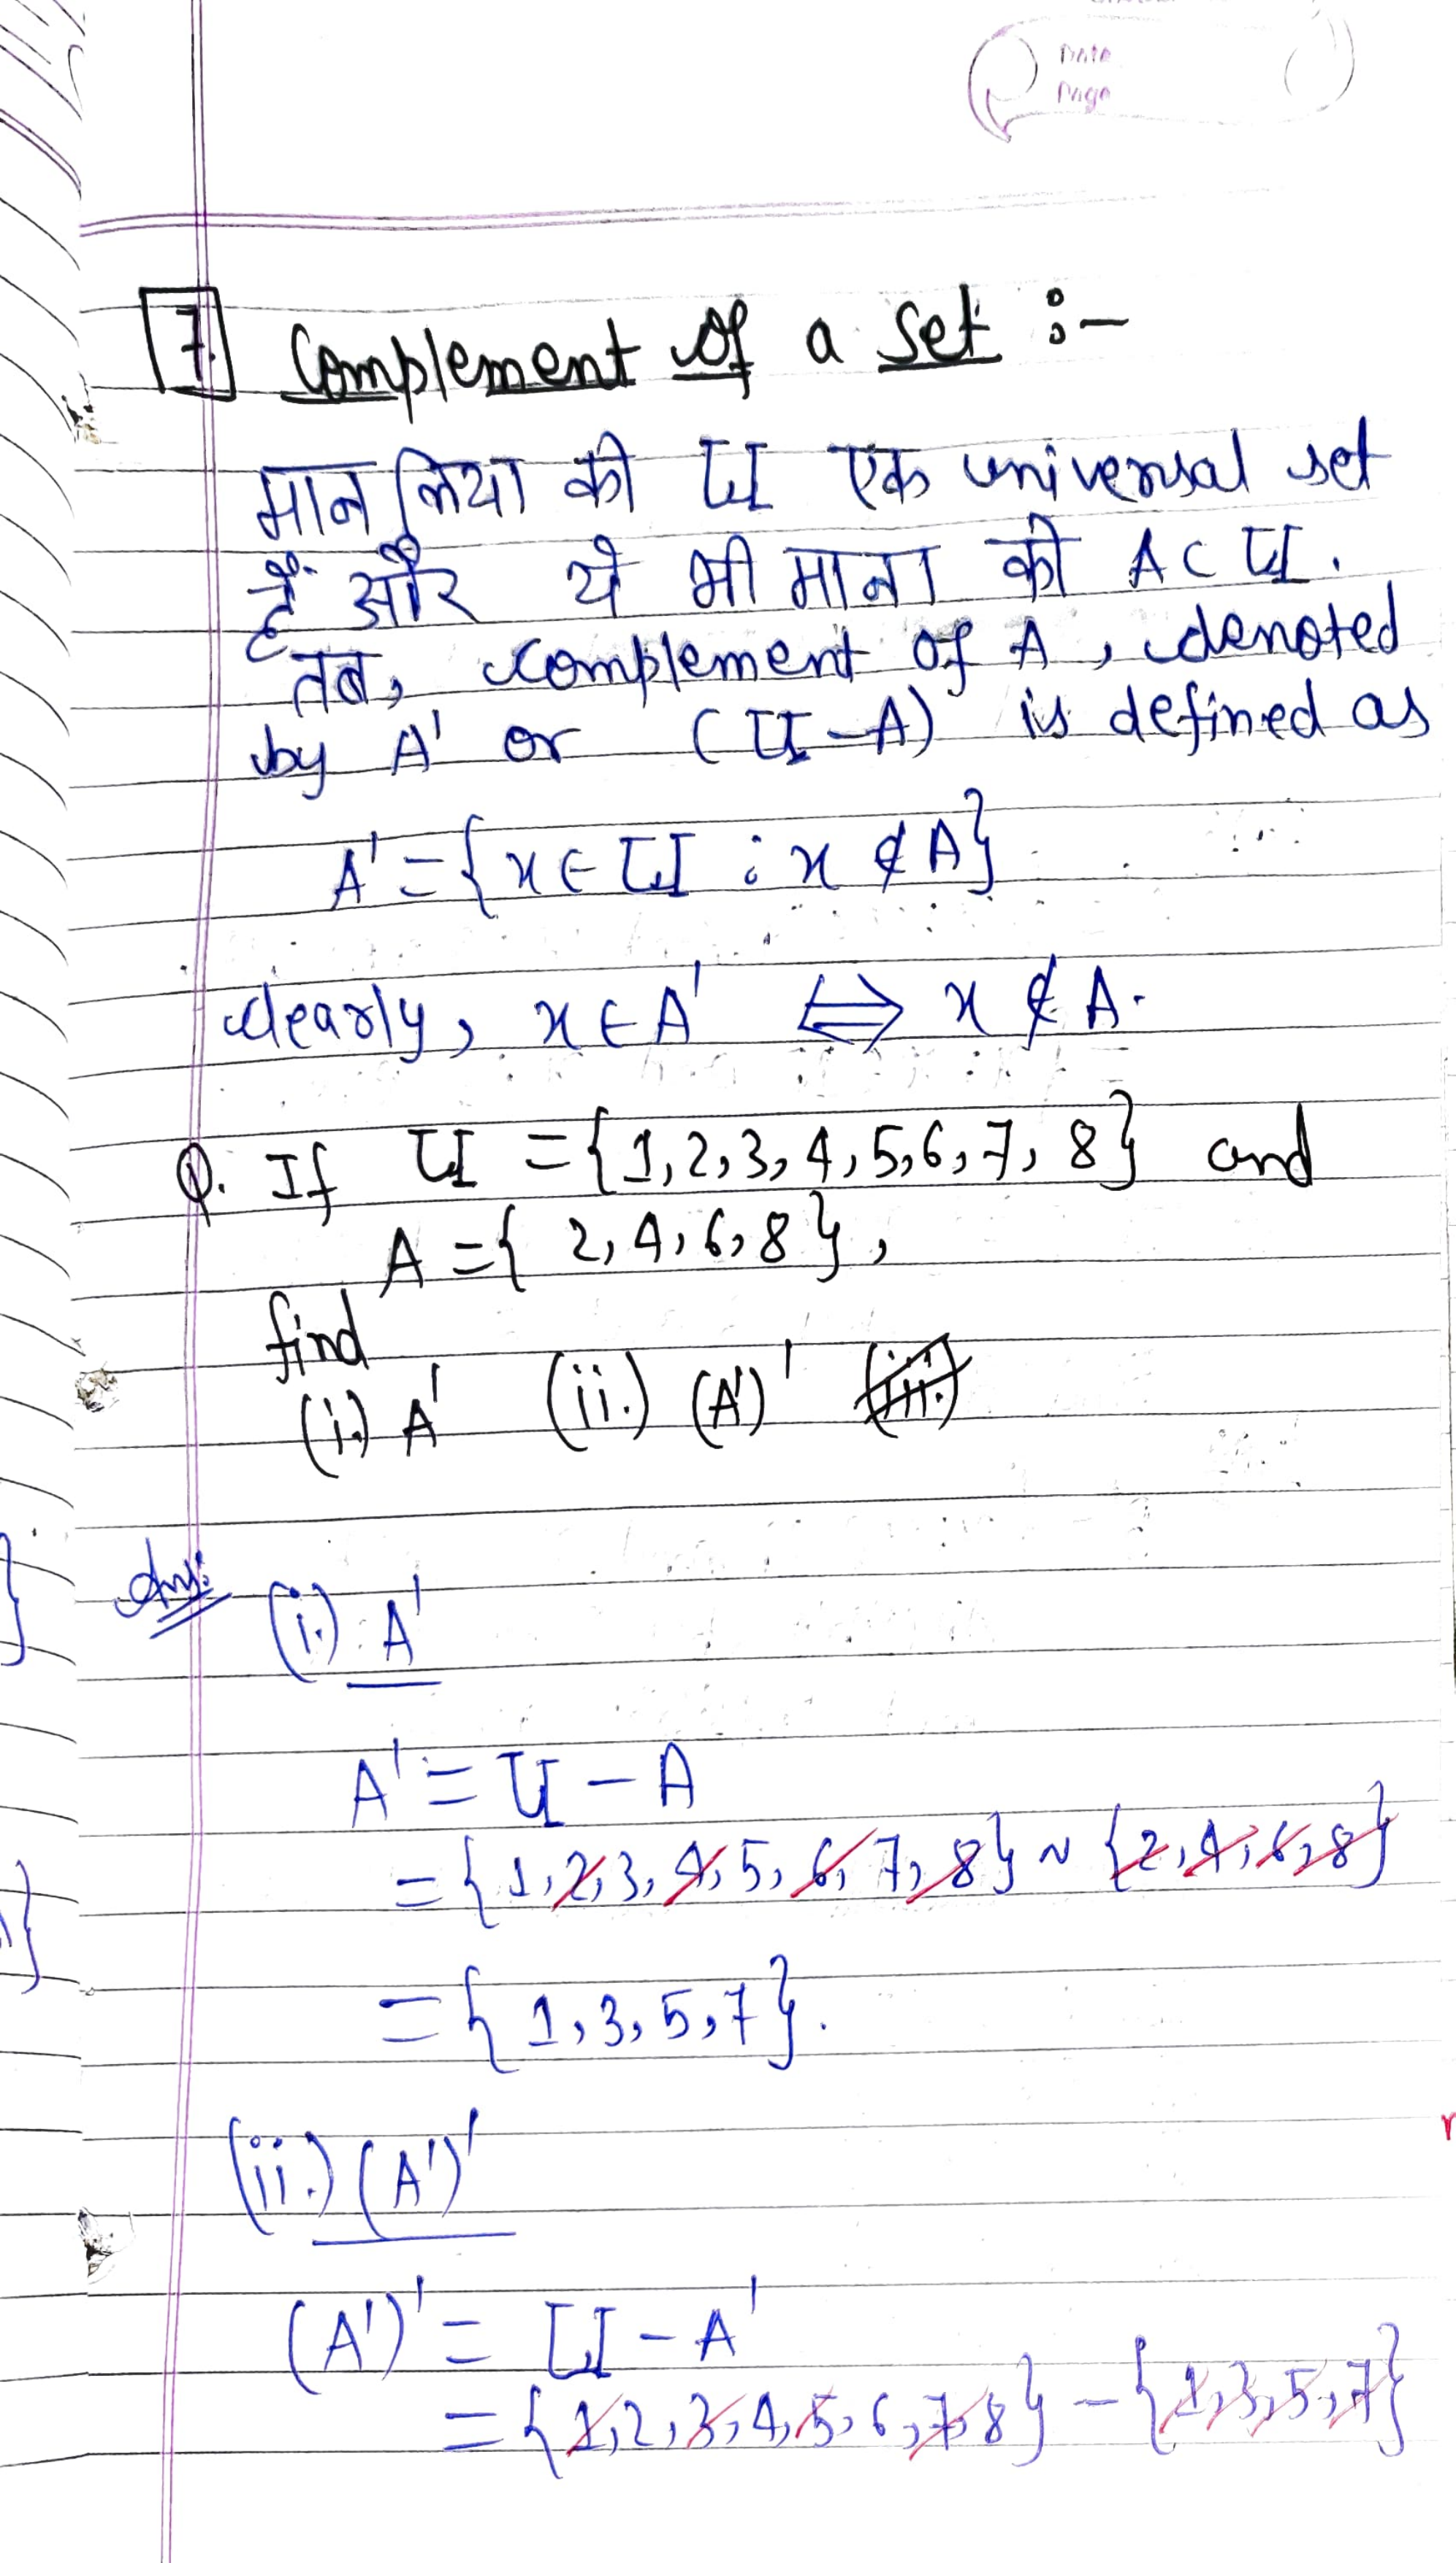 Date
Page
7. Complement of a set :-
मान लिया की U एक universal set
हैं और ये भी माना की A ⊂ U.
तब, complement of A, denoted
by A' or (U-A) is defined as
A' = {x ∈ U : x ∉ A}
clearly, x ∈ A' ⇔ x ∉ A.
Q. If U = {1, 2, 3, 4, 5, 6, 7, 8} and
A = { 2, 4, 6, 8 },
find
(i.) A' (ii.) (A')' (iii.)
Ans:
(i.) A'
A' = U - A
= { 1, 2, 3, 4, 5, 6, 7, 8} ~ {2, 4, 6, 8}
= { 1, 3, 5, 7 }.
(ii.) (A')'
(A')' = U - A'
= {1, 2, 3, 4, 5, 6, 7, 8} - {1, 3, 5, 7}